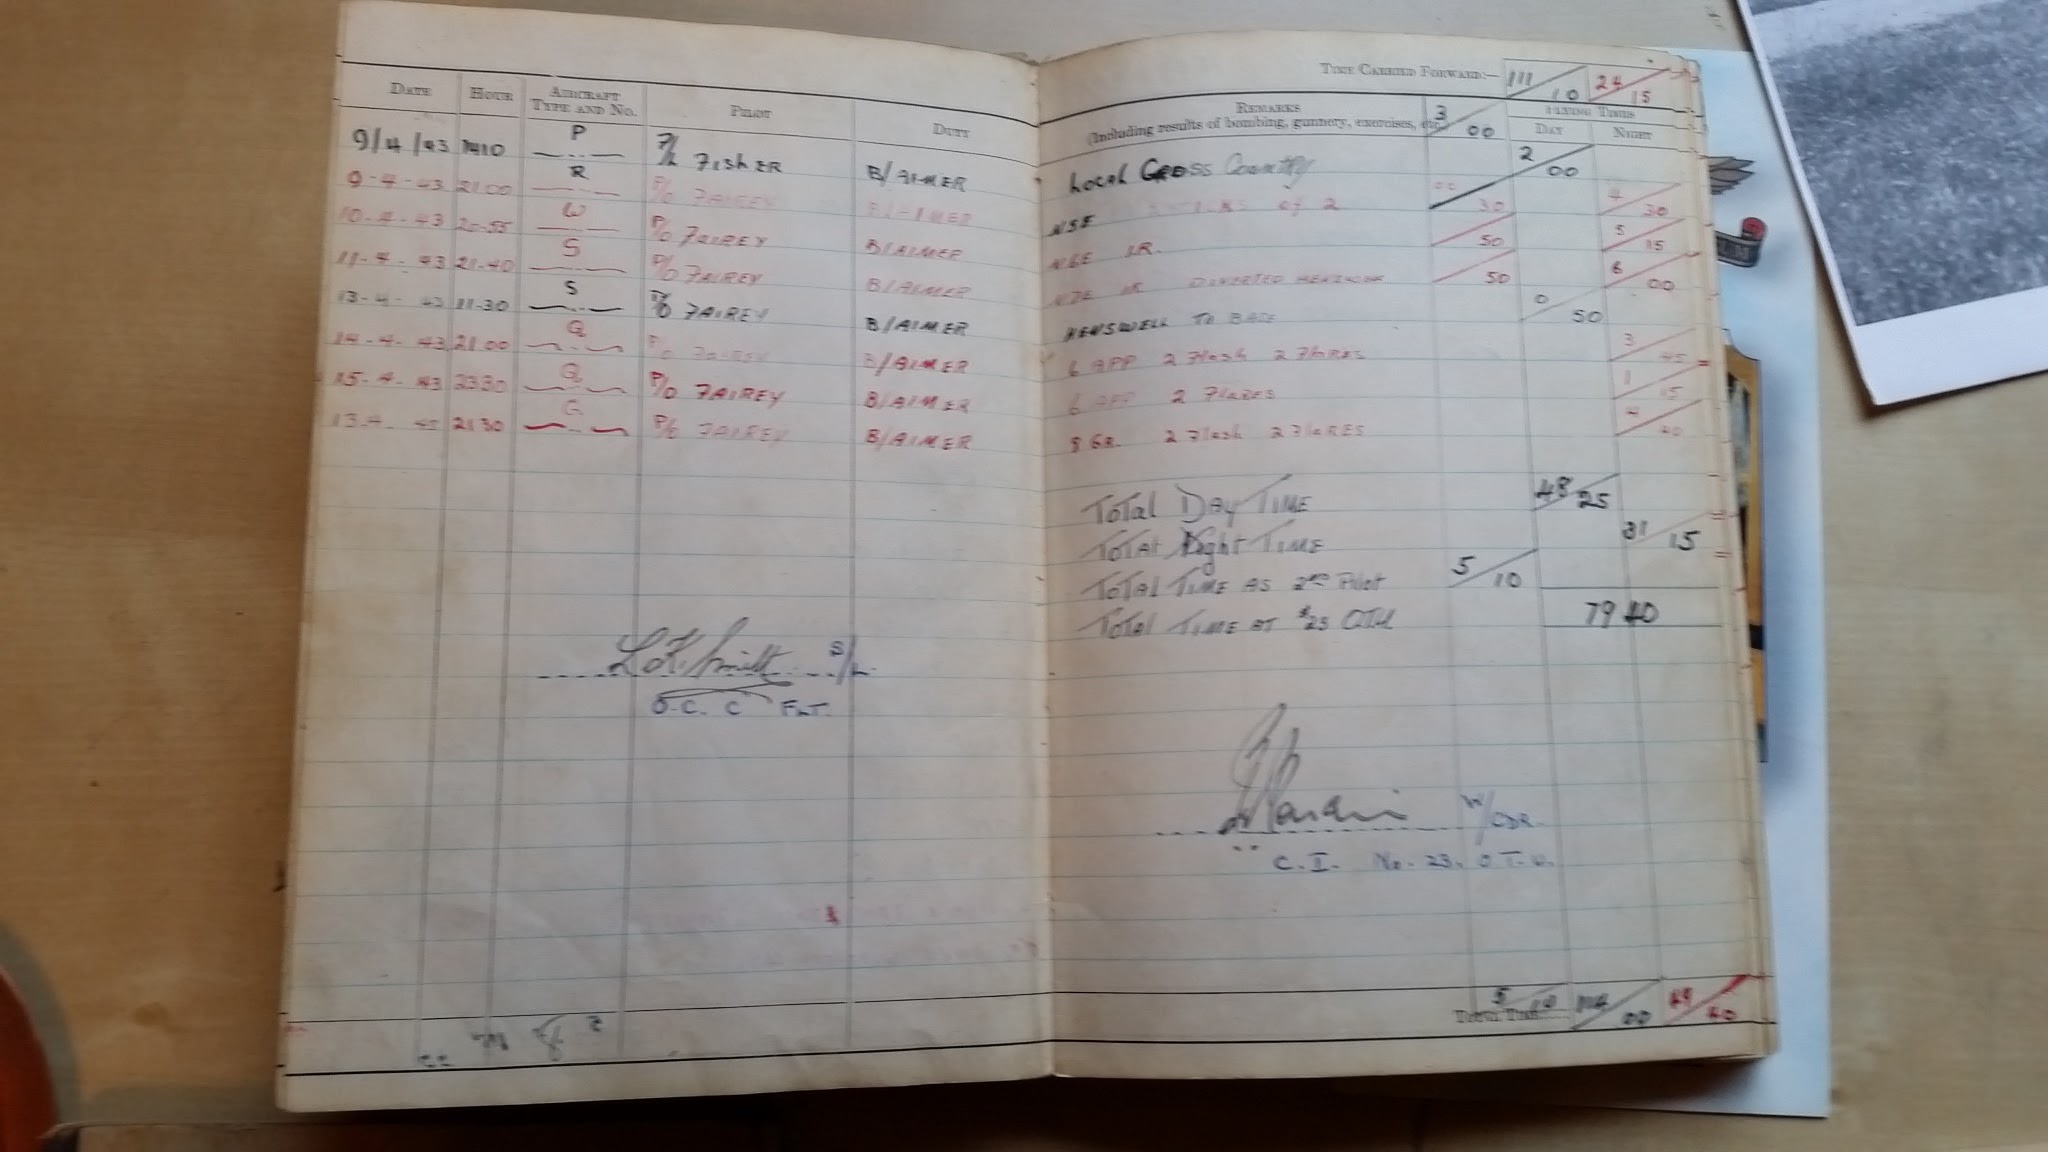 DATE HOUR AIRCRAFT TYPE AND No. PILOT DUTY
9/4/43 1410 P F/L FISHER B/AIMER
9-4-43 21.00 R P/O FAIREY
10-4-43 20-55 W P/O FAIREY B/AIMER
11-4-43 21-40 S P/O FAIREY B/AIMER
13-4-43 11-30 S P/O FAIREY B/AIMER
14-4-43 21.00 Q P/O FAIREY B/AIMER
15-4-43 2330 Q P/O FAIREY B/AIMER
2130 G P/O FAIREY B/AIMER
L.K. Smith S/L.
O.C. C FLT.
TIME CARRIED FORWARD:— 111/10 24/15
REMARKS
(Including results of bombing, gunnery, exercises, etc. 3/00 FLYING TIMES
DAY NIGHT
Local Cross Country 2/00
of 2 30 4/30
1R. 50 5/15
1R DIVERTED 50 6/00
HEMSWELL TO BASE 0/50
6 APP 2 Flash 2 FLARES 3/45
6 APP 2 FLARES 1/15
2 Flash 2 FLARES
Total Day Time 48/25
Total Night Time 31/15
Total Time as 2nd Pilot 5/10
Total Time at 23 OTU 79 40
W/CDR.
C.I. No. 23. O.T.U.
TOTAL TIME 5/10 114/00 49/40